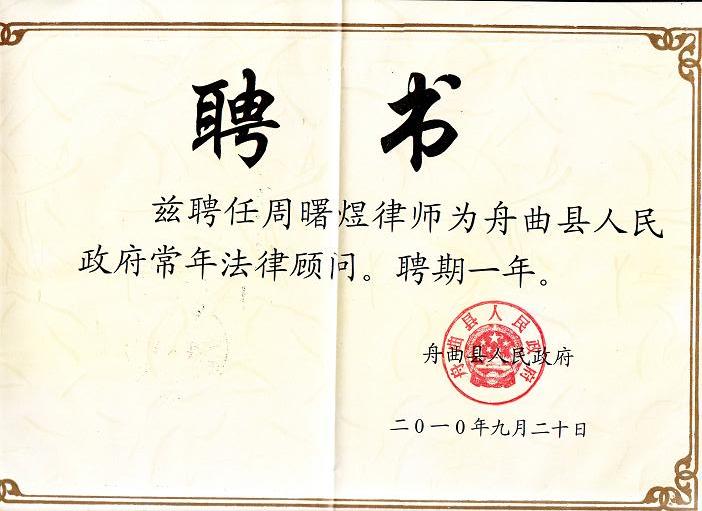 聘书
兹聘任周曙煜律师为舟曲县人民
政府常年法律顾问。聘期一年。
舟曲县人民政府
舟曲县人民政府
二〇一〇年九月二十日